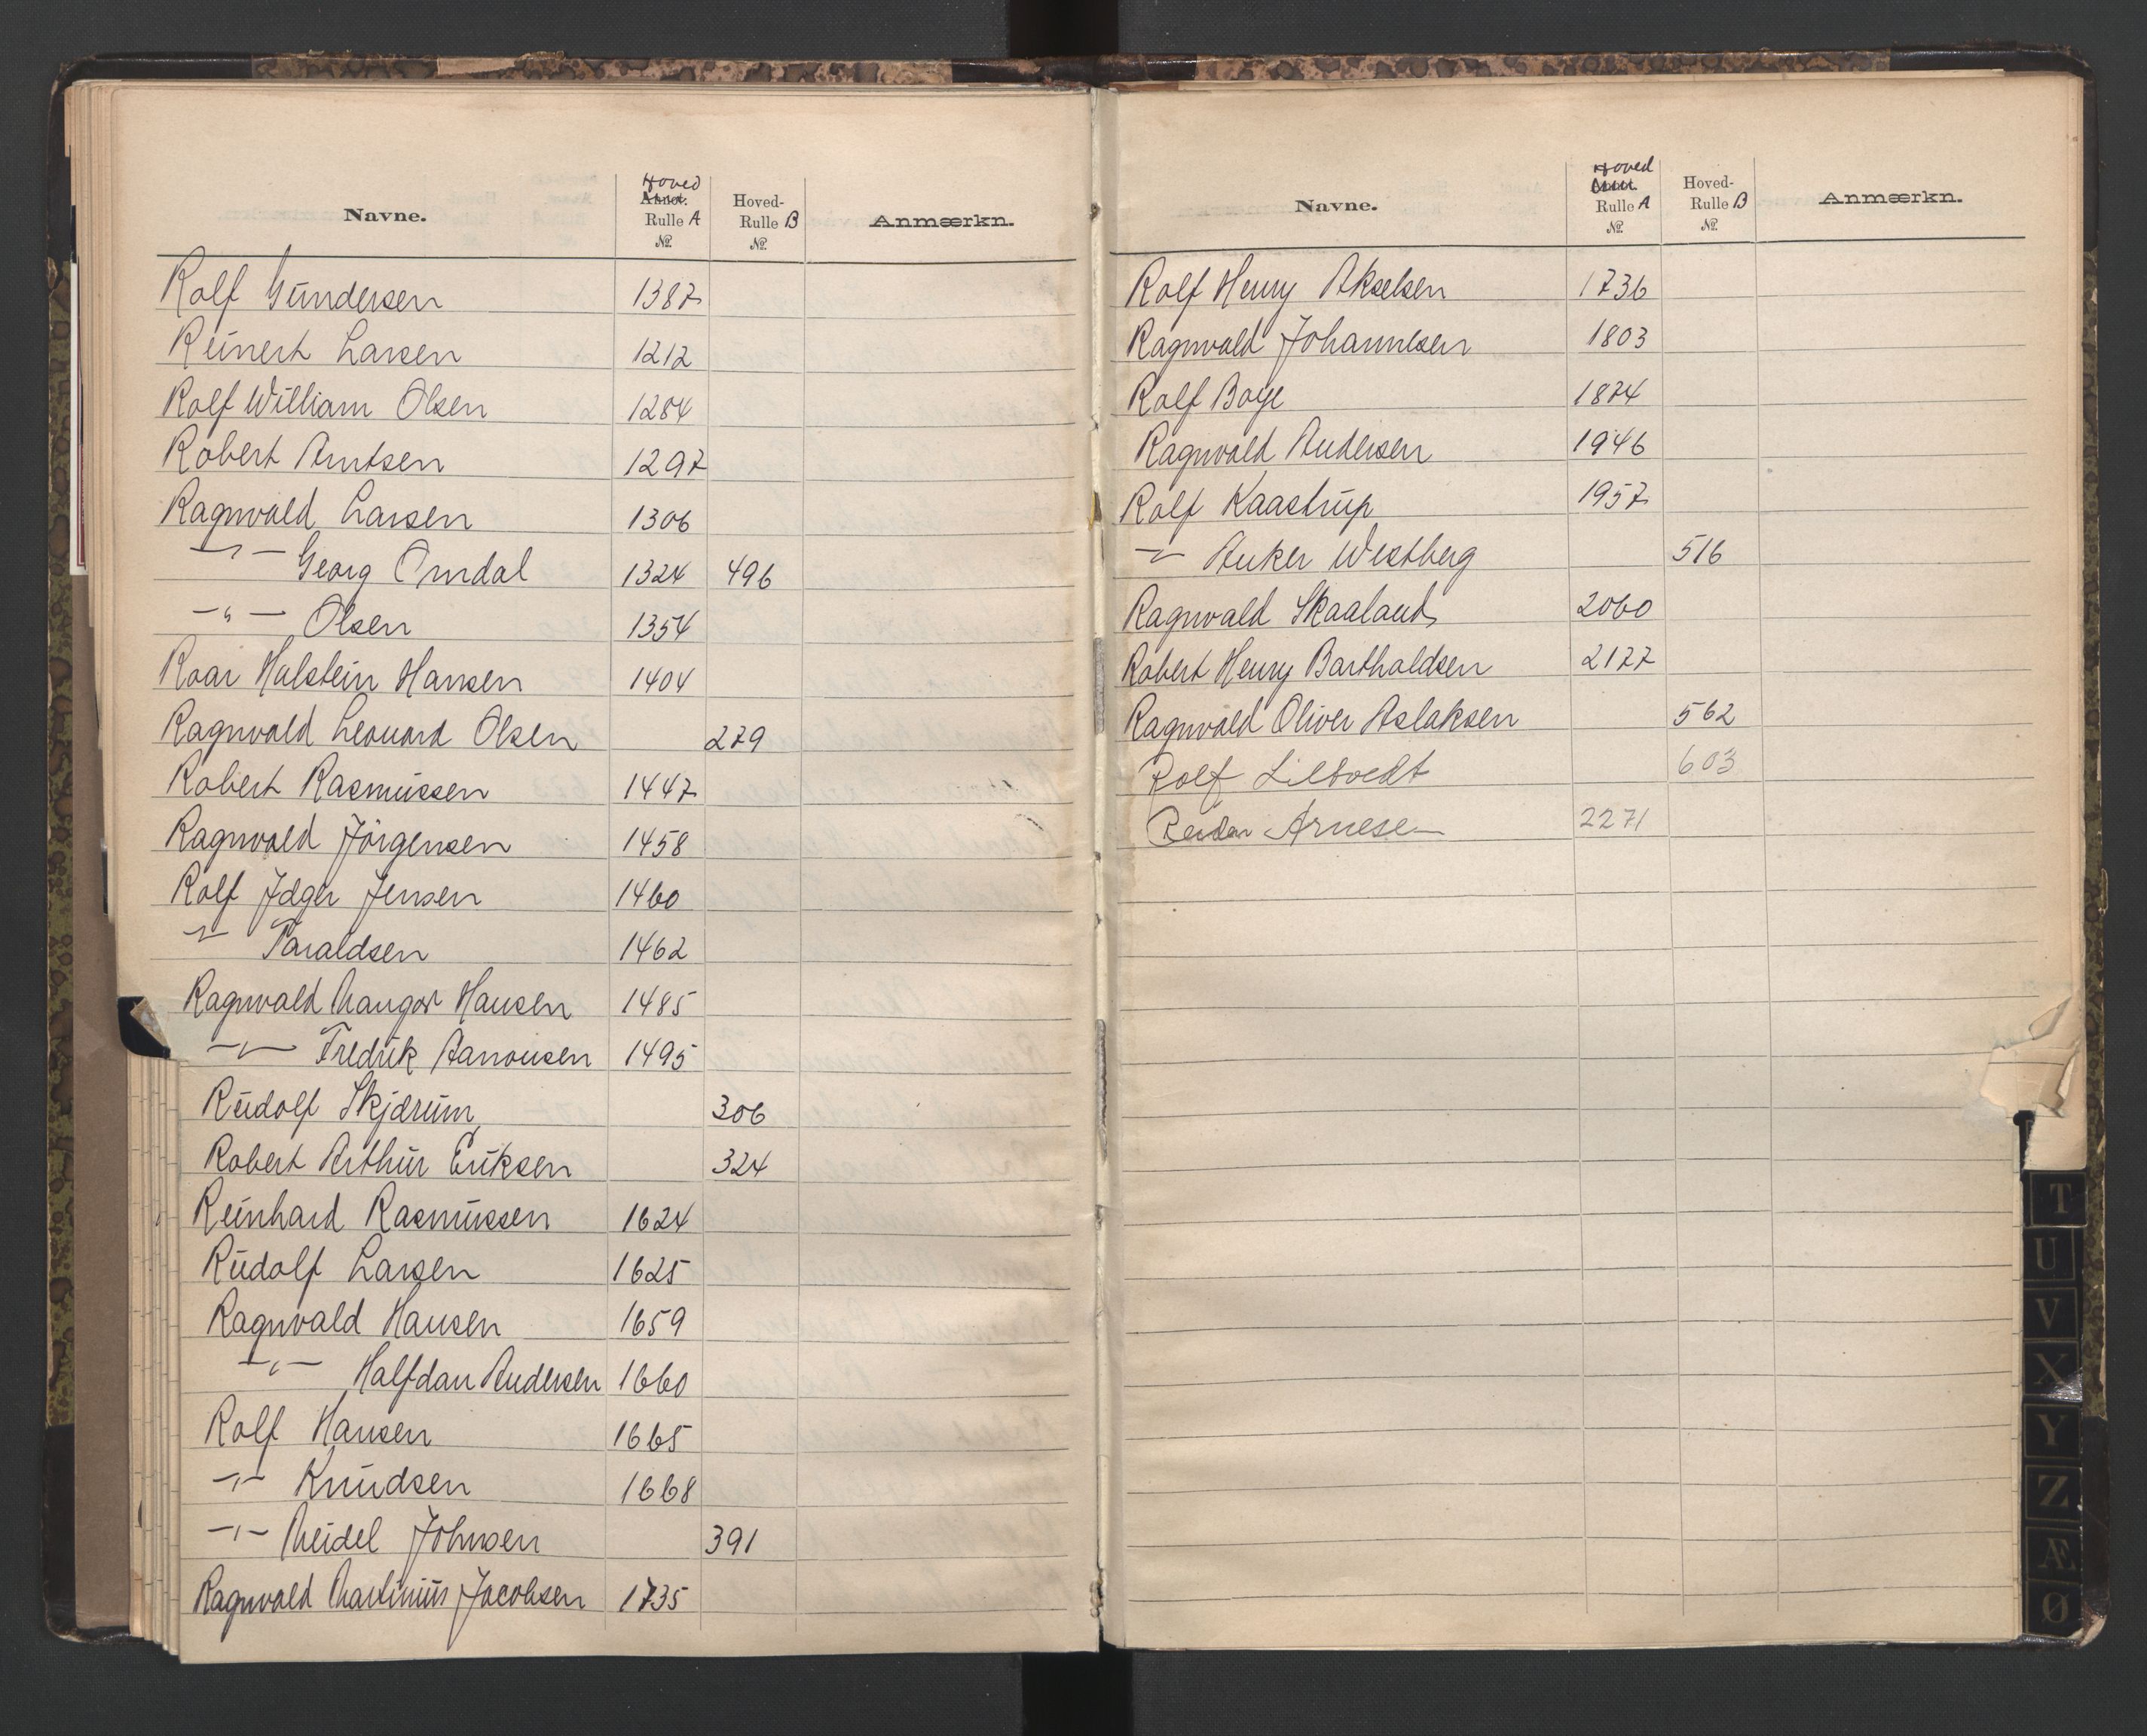 Navne. Hoved Rulle A No. Hoved-Rulle B No. Anmærkn.
Rolf Gundersen 1387
Reinert Larsen 1212
Rolf William Olsen 1284
Robert Arntsen 1297
Ragnvald Larsen 1306
—"— Georg Omdal 1324 496
—"— Olsen 1354
Roar Halstein Hansen 1404
Ragnvald Leonard Olsen 279
Robert Rasmussen 1447
Ragnvald Jörgensen 1458
Rolf Edger Jensen 1460
—"— Taraldsen 1462
Ragnvald Mangor Hansen 1485
—"— Fredrik Aanonsen 1495
Rudolf Skjdrum 306
Robert Arthur Eriksen 324
Reinhard Rasmussen 1624
Rudolf Larsen 1625
Ragnvald Hansen 1659
—"— Halfdan Andersen 1660
Rolf Hansen 1665
—"— Knudsen 1668
—"— Meidel Johnsen 391
Ragnvald Martinius Jacobsen 1735
Navne. Hoved Rulle A No. Hoved-Rulle B No. Anmærkn.
Rolf Henry Akselsen 1736
Ragnvald Johannesen 1803
Rolf Boye 1874
Ragnvald Andersen 1946
Rolf Kaastrup 1957
—"— Anker Westberg 516
Ragnvald Skaaland 2060
Robert Henry Bartholdsen 2177
Ragnvald Oliver Aslaksen 562
Rolf Liltvedt 603
Reidar Arnesen 2271
T
U
V
X
Y
Z
Æ
Ø